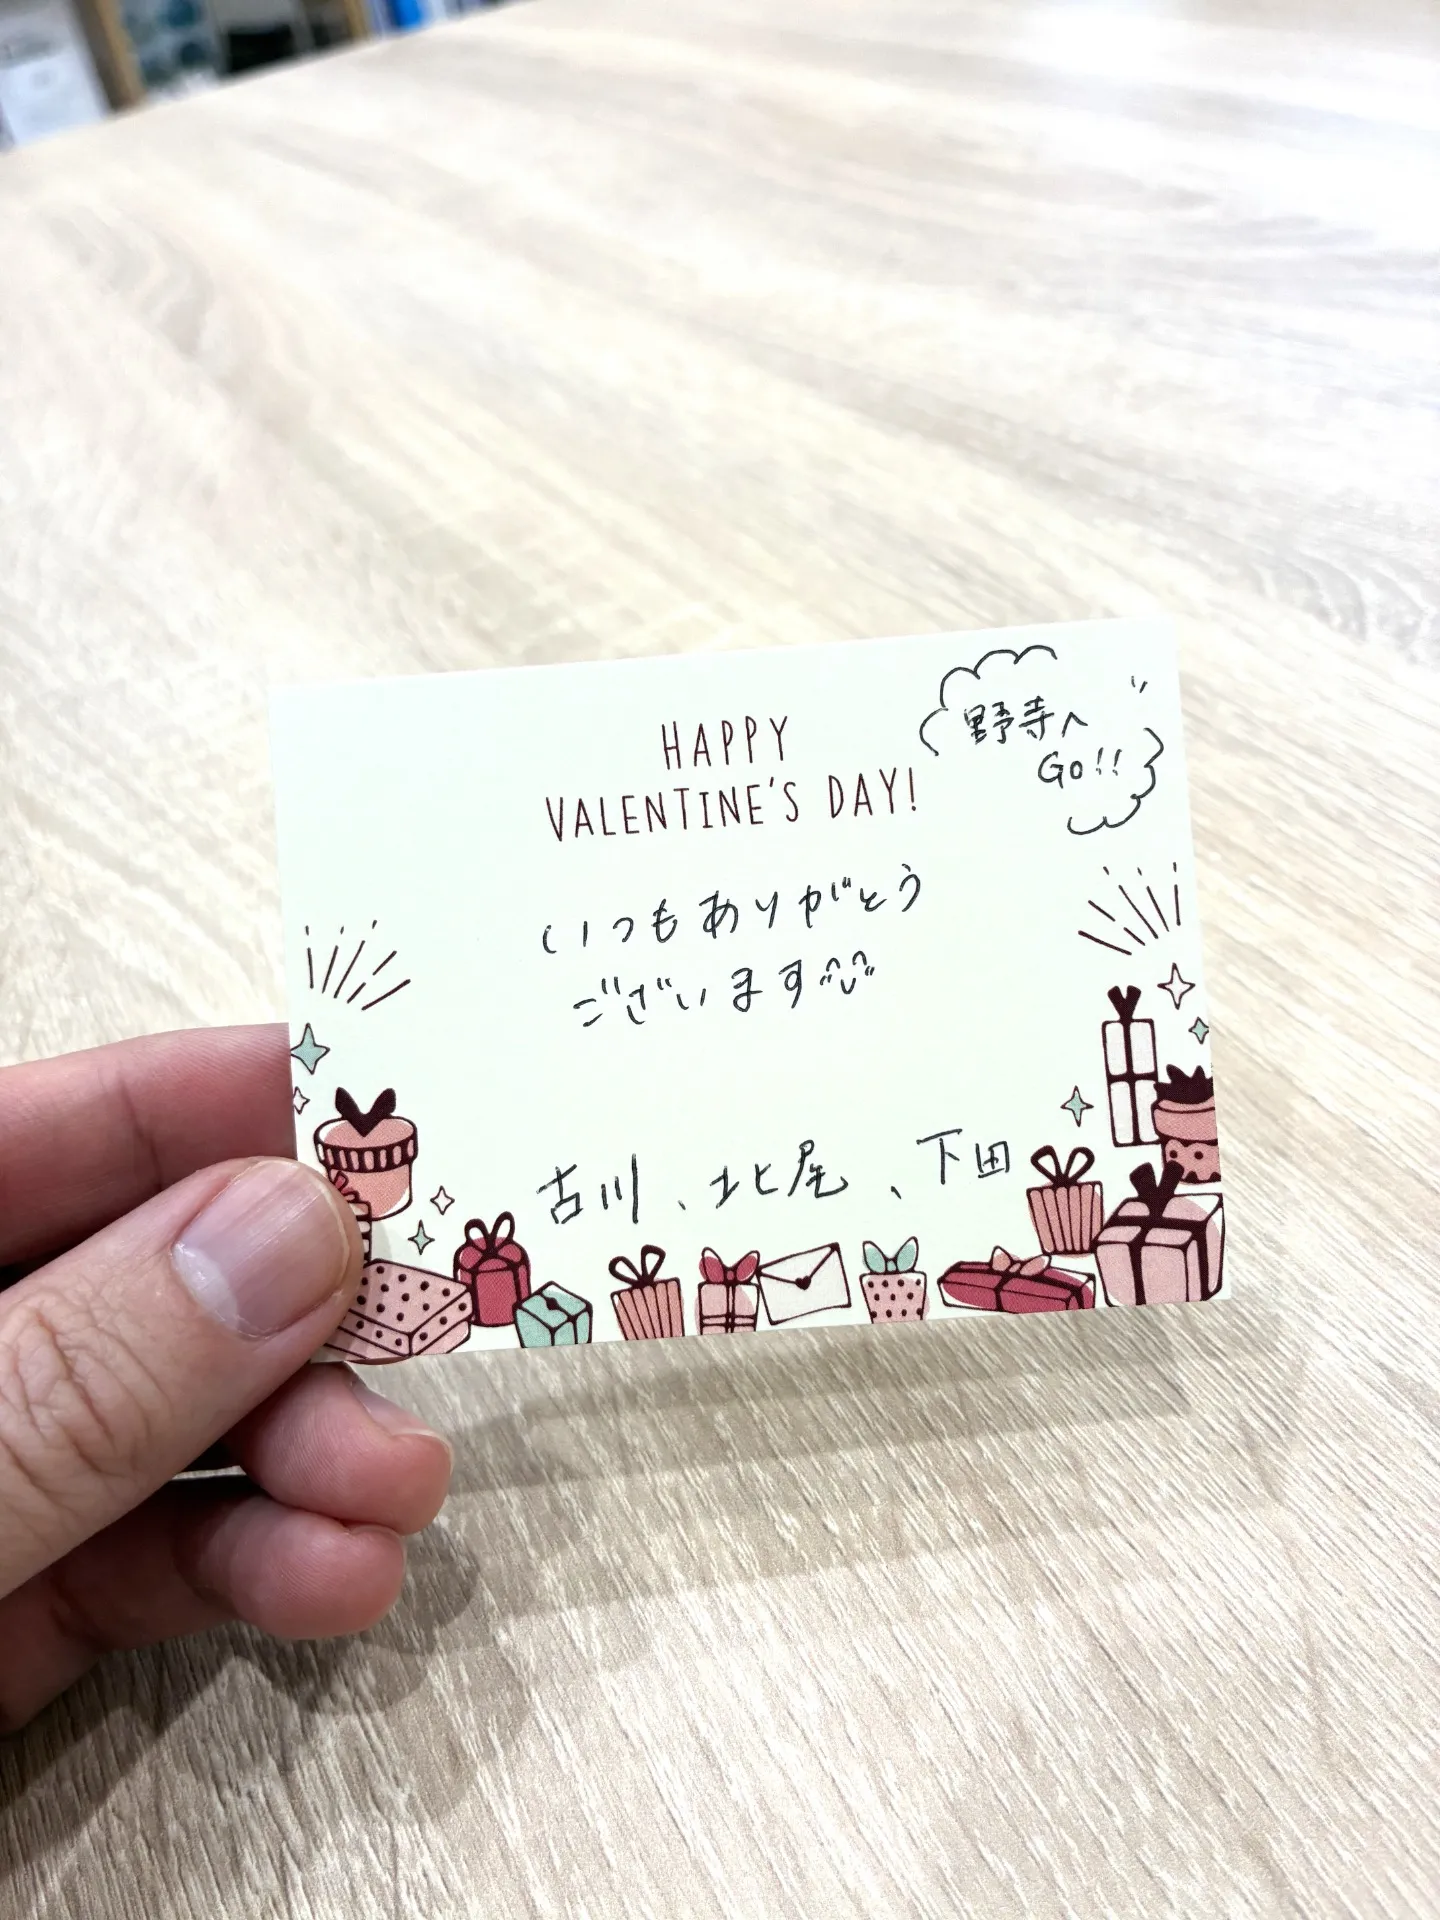 野寺へ
Go!!
HAPPY
VALENTINE'S DAY!
いつもありがとう
ございます
古川、北尾、下田